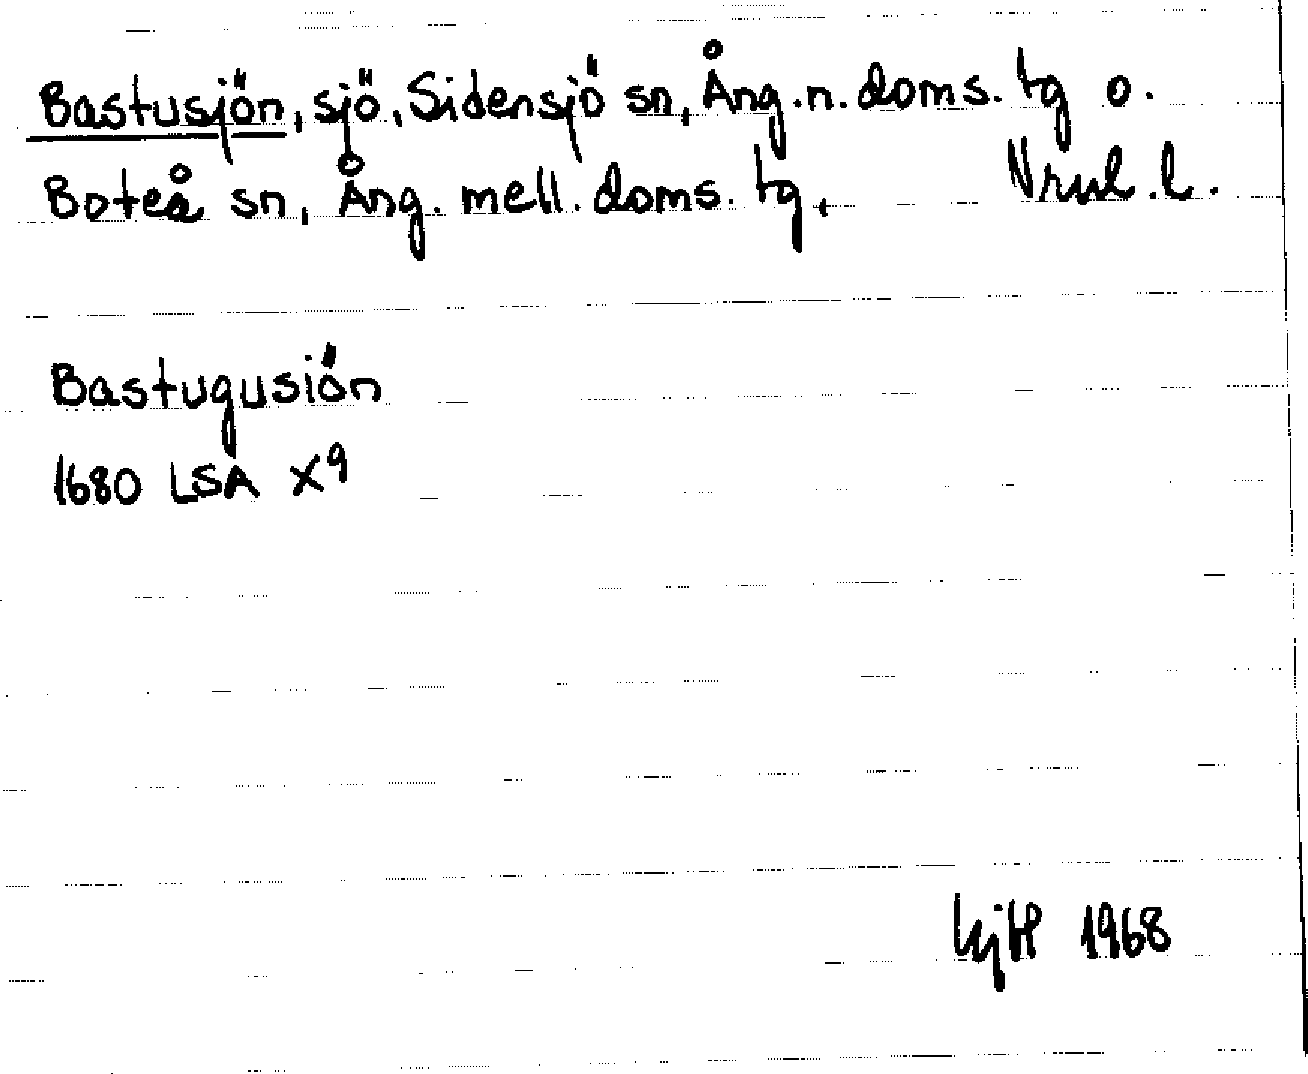 Bastusjön, sjö, Sidensjö sn, Ång. n. doms. tg o.
Boteå sn, Ång. mell. doms. tg.
Bastugusiön
1680 LSA X9
1968